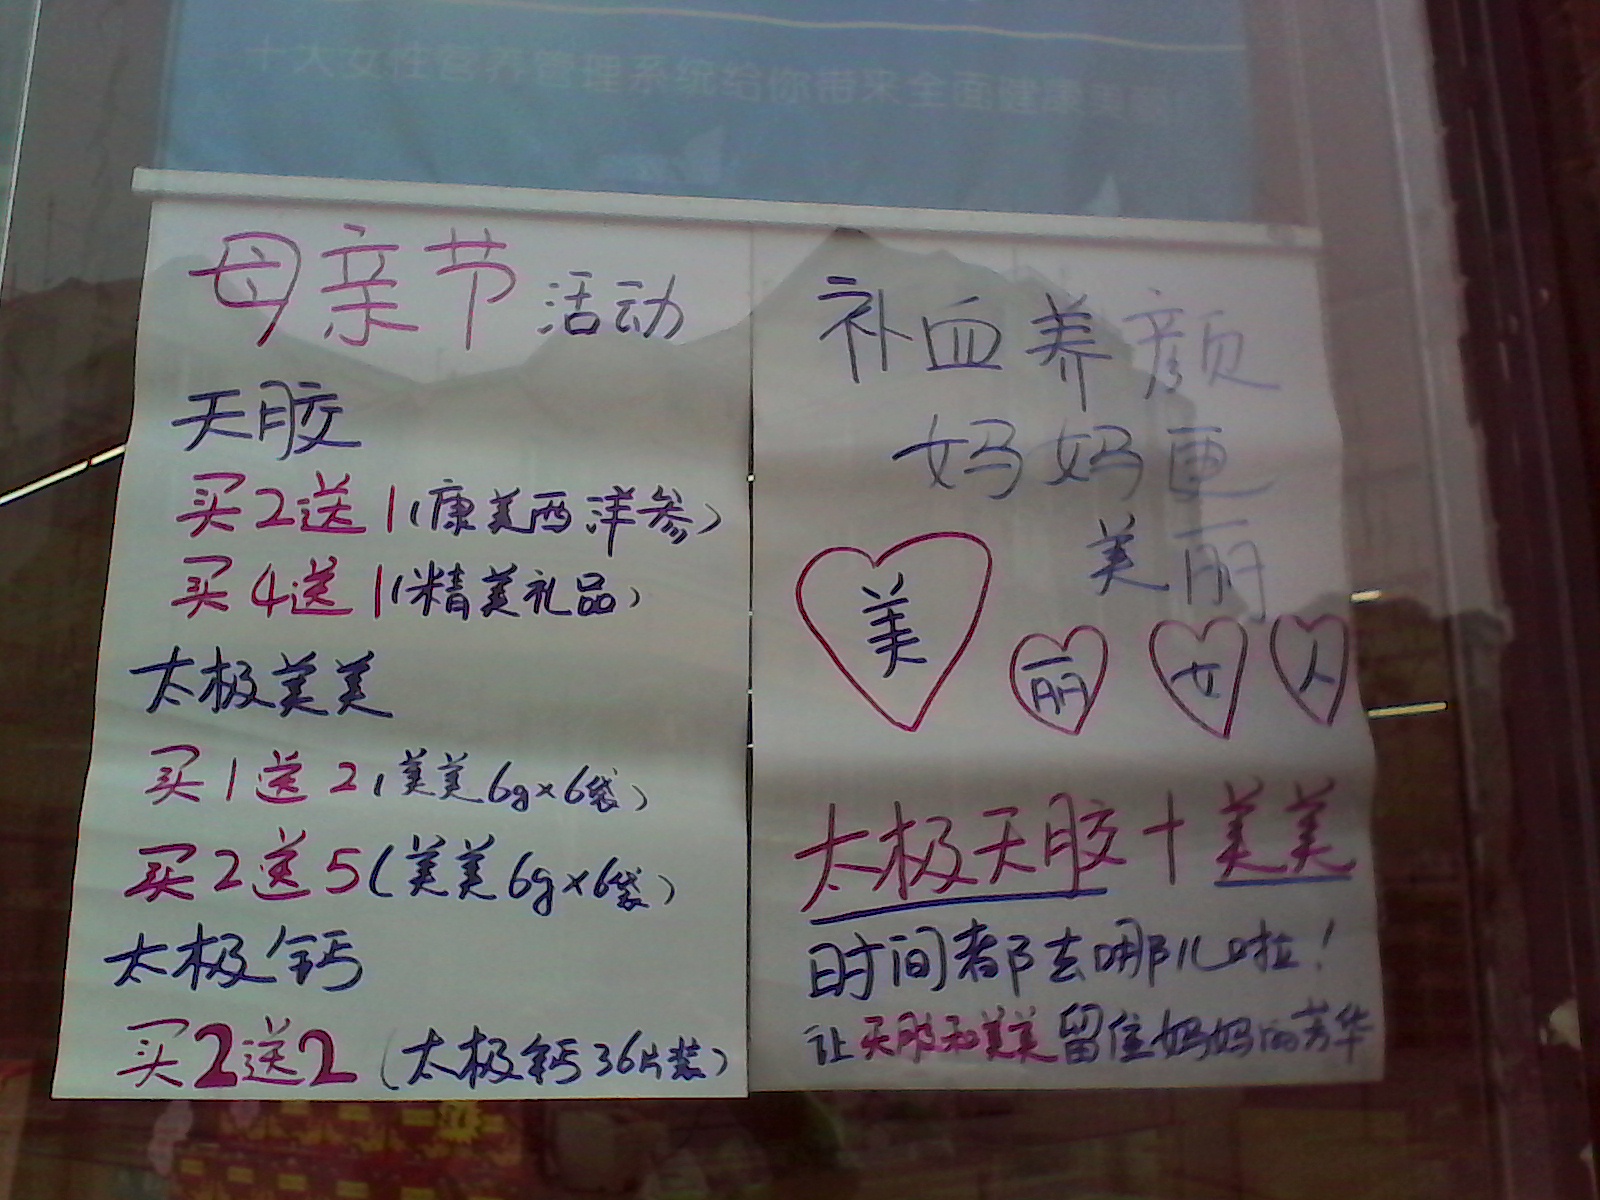 十大女性营养管理系统给你带来全面健康美丽
母亲节活动
天胶
买2送1(康美西洋参)
买4送1(精美礼品)
太极美美
买1送2(美美6g×6袋)
买2送5(美美6g×6袋)
太极钙
买2送2(太极钙36片装)
补血养颜
妈妈更
美丽
美丽女人
太极天胶+美美
时间都去哪儿啦!
让天胶和美美留住妈妈的芳华